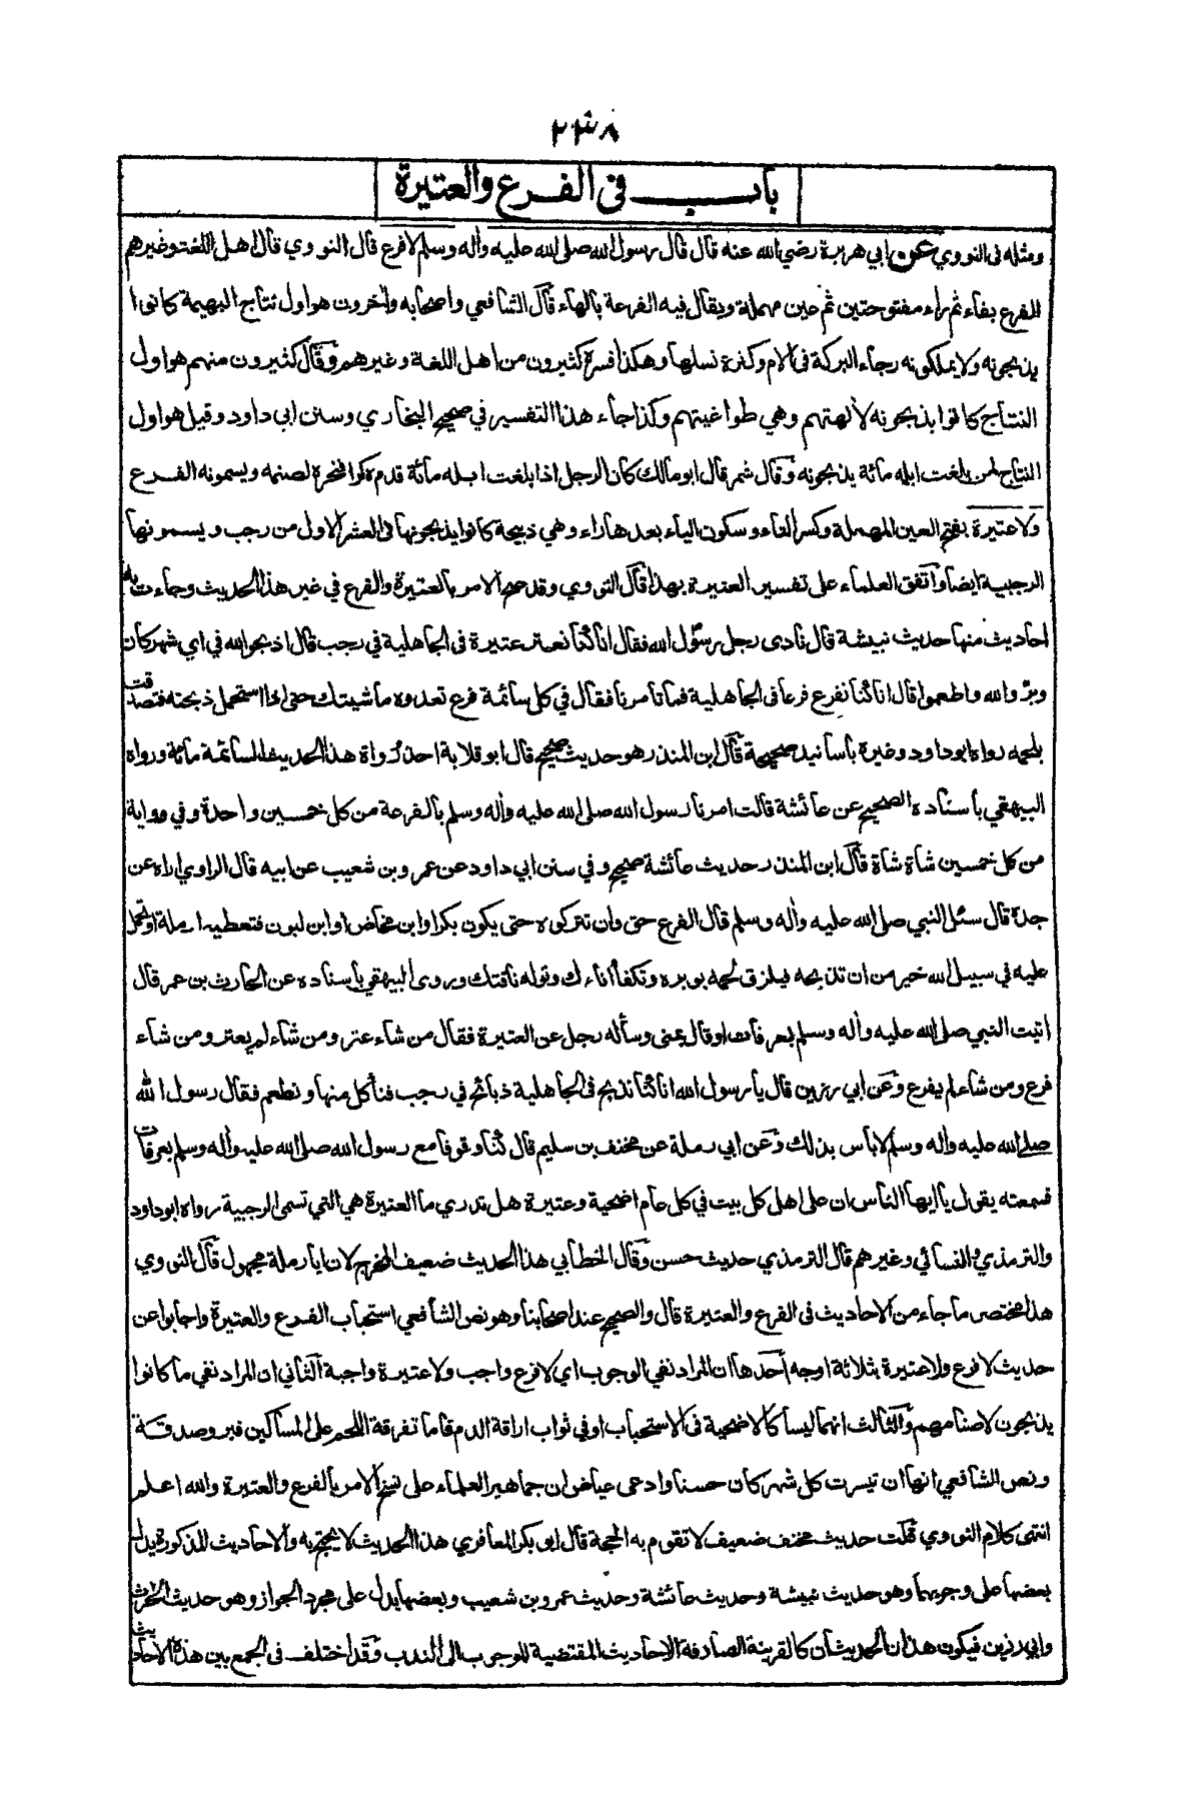 ٢٣٨
باب في الفرع والعتيرة
ومثله في النووي عن ابي هريرة رضي الله عنه قال قال رسول الله صلى الله عليه واله وسلم لا فرع قال النووي قال اهل اللغة وغيرهم
الفرع بفاء ثم راء مفتوحتين ثم عين مهملة ويقال فيه الفرعة بالهاء قال الشافعي واصحابه وآخرون هو اول نتاج البهيمة كانوا
يذبحونه ولا يملكونه رجاء البركة في الام وكثرة نسلها وهكذا فسره كثيرون من اهل اللغة وغيرهم وقال كثيرون منهم هو اول
النتاج كانوا يذبحونه لألهتهم وهي طواغيتهم وكذا جاء هذا التفسير في صحيح البخاري وسنن ابي داود وقيل هو اول
النتاج لمن بلغت ابله مائة يذبحونه وقال شمر قال ابو مالك كان الرجل اذا بلغت ابله مائة قدم بكرا فنحره لصنمه ويسمونه الفرع
ولا عتيرة بفتح العين المهملة وكسر التاء وسكون الياء بعدها راء وهي ذبيحة كانوا يذبحونها في العشر الاول من رجب ويسمونها
الرجبية ايضا واتفق العلماء على تفسير العتيرة بهذا قال النووي وقد صح الامر بالعتيرة والفرع في غير هذا الحديث وجاءت به
احاديث منها حديث نبيشة قال نادى رجل رسول الله فقال انا كنا نعتر عتيرة في الجاهلية في رجب قال اذبحوا لله في اي شهر كان
وبرّوا لله واطعموا قال انا كنا نفرع فرعا في الجاهلية فما تامرنا فقال في كل سائمة فرع تغدوه ماشيتك حتى اذا استحمل ذبحته فتصدقت
بلحمه رواه ابو داود وغيره بأسانيد صحيحة قال ابن المنذر هو حديث صحيح قال ابو قلابة احد رواة هذا الحديث السائمة مائة ورواه
البيهقي بأسناده الصحيح عن عائشة قالت امرنا رسول الله صلى الله عليه واله وسلم بالفرعة من كل خمسين واحدة وفي رواية
من كل خمسين شاة شاة قال ابن المنذر حديث عائشة صحيح وفي سنن ابي داود عن عمرو بن شعيب عن ابيه قال الراوي اراه عن
جده قال سئل النبي صلى الله عليه واله وسلم قال الفرع حق وان تتركوه حتى يكون بكرا او ابن مخاض او ابن لبون فتعطيه ارملة او تحمل
عليه في سبيل الله خير من ان تذبحه فيلزق لحمه بوبره وتكفأ اناءك وتوله ناقتك وروى البيهقي بأسناده عن الحارث بن عمر قال
اتيت النبي صلى الله عليه واله وسلم بعرفات او قال بمنى وسأله رجل عن العتيرة فقال من شاء عتر ومن شاء لم يعتر ومن شاء
فرع ومن شاء لم يفرع وعن ابي رزين قال يا رسول الله انا كنا نذبح في الجاهلية ذبائح في رجب فنأكل منها ونطعم فقال رسول الله
صلى الله عليه واله وسلم لا بأس بذلك وعن ابي رملة عن مخنف بن سليم قال كنا وقوفا مع رسول الله صلى الله عليه واله وسلم بعرفات
فسمعته يقول يا ايها الناس ان على اهل كل بيت في كل عام اضحية وعتيرة هل تدري ما العتيرة هي التي تسمى الرجبية رواه ابو داود
والترمذي والنسائي وغيرهم قال الترمذي حديث حسن وقال الخطابي هذا الحديث ضعيف المخرج لان ابا رملة مجهول قال النووي
هذا مختصر ما جاء من الاحاديث في الفرع والعتيرة قال والصحيح عند اصحابنا وهو نص الشافعي استحباب الفرع والعتيرة واجابوا عن
حديث لا فرع ولا عتيرة بثلاثة اوجه أحدها ان المراد نفي الوجوب اي لا فرع واجب ولا عتيرة واجبة الثاني ان المراد نفي ما كانوا
يذبحون لاصنامهم والثالث انهما ليسا كالاضحية في الاستحباب او في ثواب اراقة الدم فاما تفرقة اللحم على المساكين فبر وصدقة
ونص الشافعي انها ان تيسرت كل شهر كان حسنا وادعى عياض ان جماهير العلماء على نسخ الامر بالفرع والعتيرة والله اعلم
انتهى كلام النووي قلت حديث مخنف ضعيف لا تقوم به الحجة قال ابو بكر المعافري هذا الحديث لا يحتج به والاحاديث المذكورة يدل
بعضها على وجوبهما وهو حديث نبيشة وحديث عائشة وحديث عمرو بن شعيب وبعضها يدل على مجرد الجواز وهو حديث الحارث
وابي رزين فيكون هذان الحديثان كالقرينة الصارفة الاحاديث المقتضية للوجوب الى الندب وقد اختلف في الجمع بين هذه الاحاديث